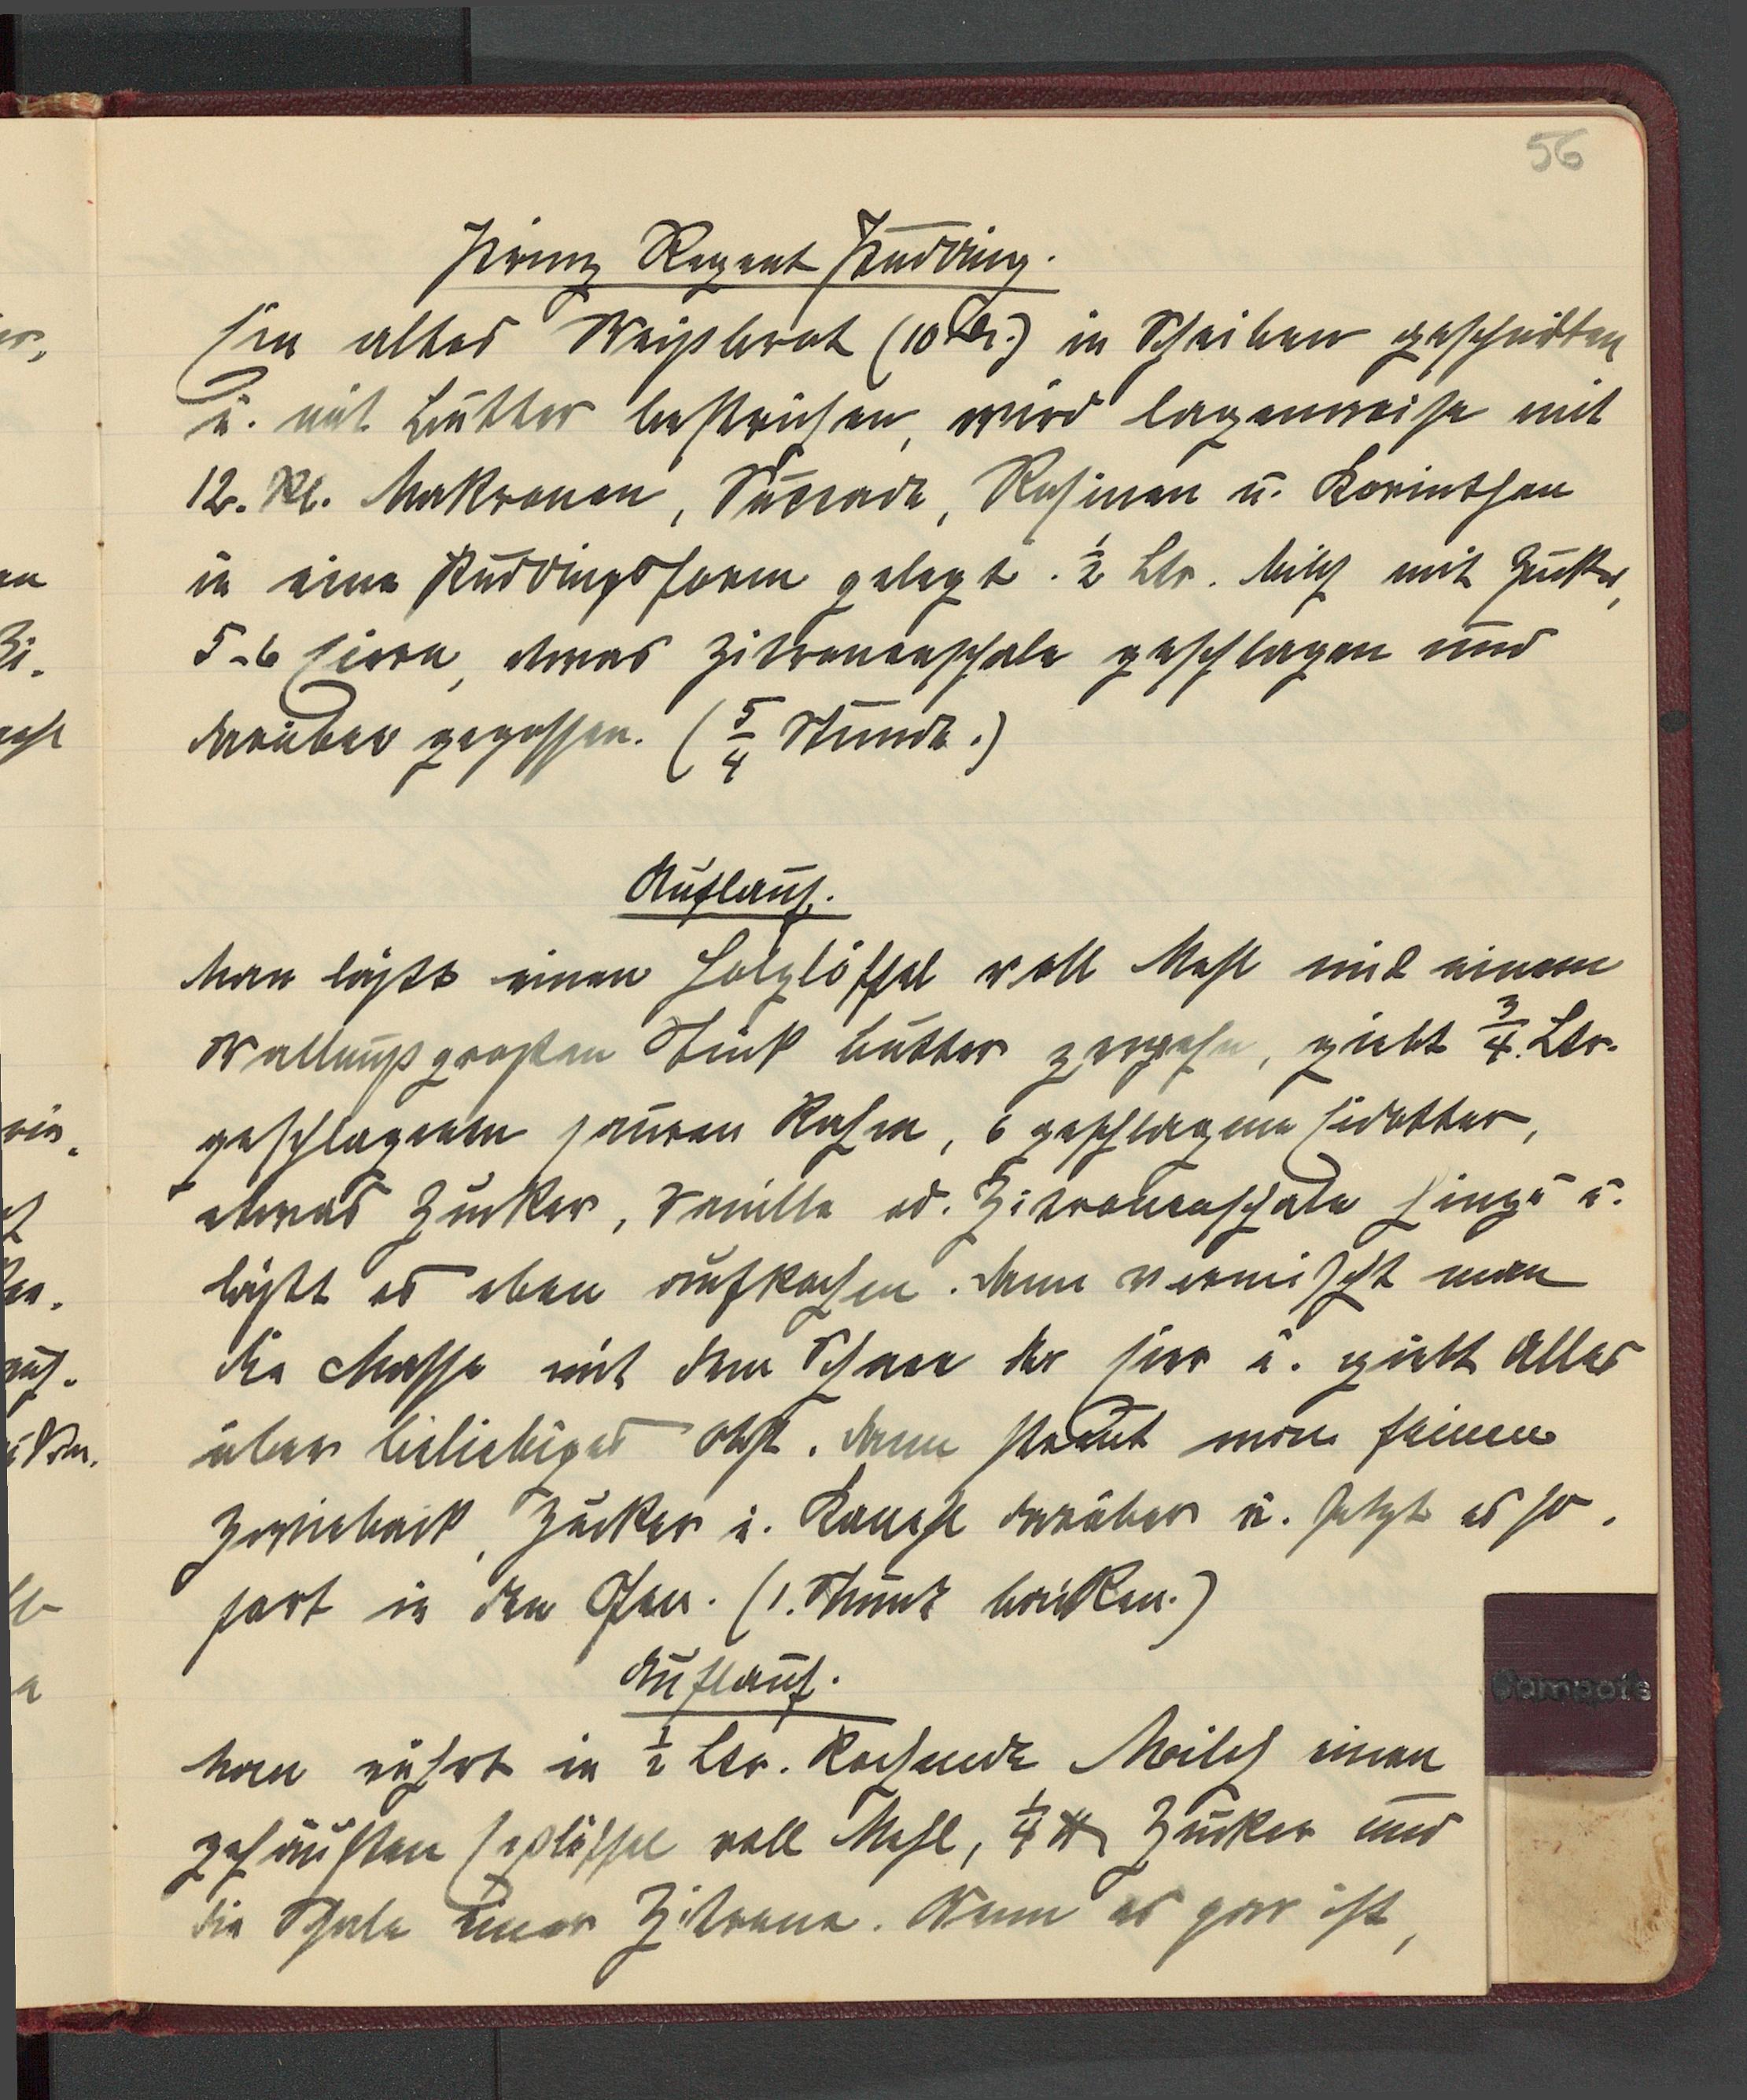 56
Prinz Regent Pudding.
Ein altes Weissbrot (10 Pf.) in Scheiben geschnitten
u. mit Butter bestrichen, wird lagenweise mit
12. Kl. Makronen, Succade, Rosinen u. Korinthen
in eine Puddingsform gelegt. ½ Ltr. Milch mit Zucker,
5-6 Eiern, etwas Zitronenschale geschlagen und
darüber gegossen. (5/4 Stunde.)
Auflauf.
Man lässt einen Holzlöffel voll Mehl mit einem
wallnussgrossen Stück Butter zergehn, giebt ¾ Ltr.
geschlagenen sauren Rahm, 6 geschlagene Eidotter,
etwas Zucker, Vanille od. Zitronenschale hinzu u.
lässt es eben aufkochen. Dann vermischt man
die Masse mit dem Schnee der Eier u. giebt Alles
über beliebiges Obst. Dann streut man feinen
Zwieback, Zucker u. Kanehl darüber u. setzt es so-
fort in den Ofen. (1. Stunde backen.)
Auflauf.
Man rührt in ½ Ltr. Kochende Milch einen
gehäuften Esslöffel voll Mehl, ¼ ℔ Zucker und
die Schale einer Zitrone. Wenn es gar ist,
Compots
er,
en
Zi-